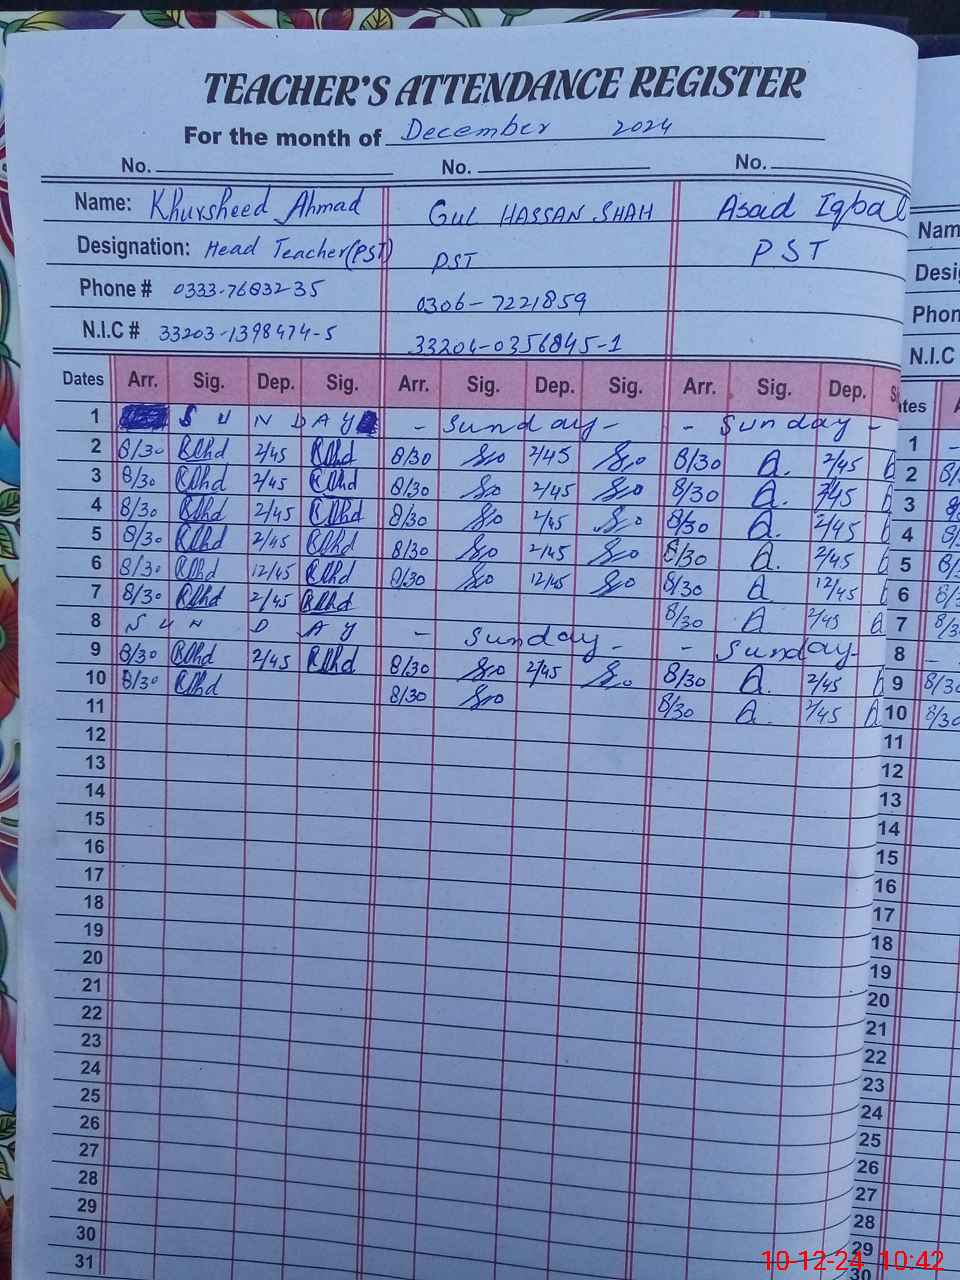 TEACHER'S ATTENDANCE REGISTER
For the month of December 2024
No. No. No.
Name: Khursheed Ahmad GUL HASSAN SHAH Asad Iqbal Nam
Designation: Head Teacher(PST) PST PST Desig
Phone # 0333-7683235 0306-7221859 Phon
N.I.C # 33203-1398474-5 33204-0356845-1 N.I.C
Dates Arr. Sig. Dep. Sig. Arr. Sig. Dep. Sig. Arr. Sig. Dep. S ates A
1 SUNDAY - Sunday - - Sunday - 1 -
2 8/30 2/45 8/30 2/45 8/30 A. 2/45 2 8/
3 8/30 2/45 8/30 2/45 8/30 A. 2/45 3 8
4 8/30 2/45 8/30 2/45 8/30 A. 2/45 4 8/
5 8/30 2/45 8/30 2/45 8/30 A. 2/45 5 8/3
6 8/30 12/45 8/30 12/45 8/30 A 12/45 6 8/3
7 8/30 2/45 8/30 A 2/45 A 7 8/3
8 SUN DAY - Sunday - - Sunday - 8 -
9 8/30 2/45 8/30 2/45 8/30 A. 2/45 9 8/30
10 8/30 8/30 8/30 A. 2/45 A 10 8/30
11 11
12 12
13 13
14 14
15 15
16 16
17 17
18 18
19 19
20 20
21 21
22 22
23 23
24 24
25 25
26 26
27 27
28 28
29 29
30 30
31
10-12-24 10:42